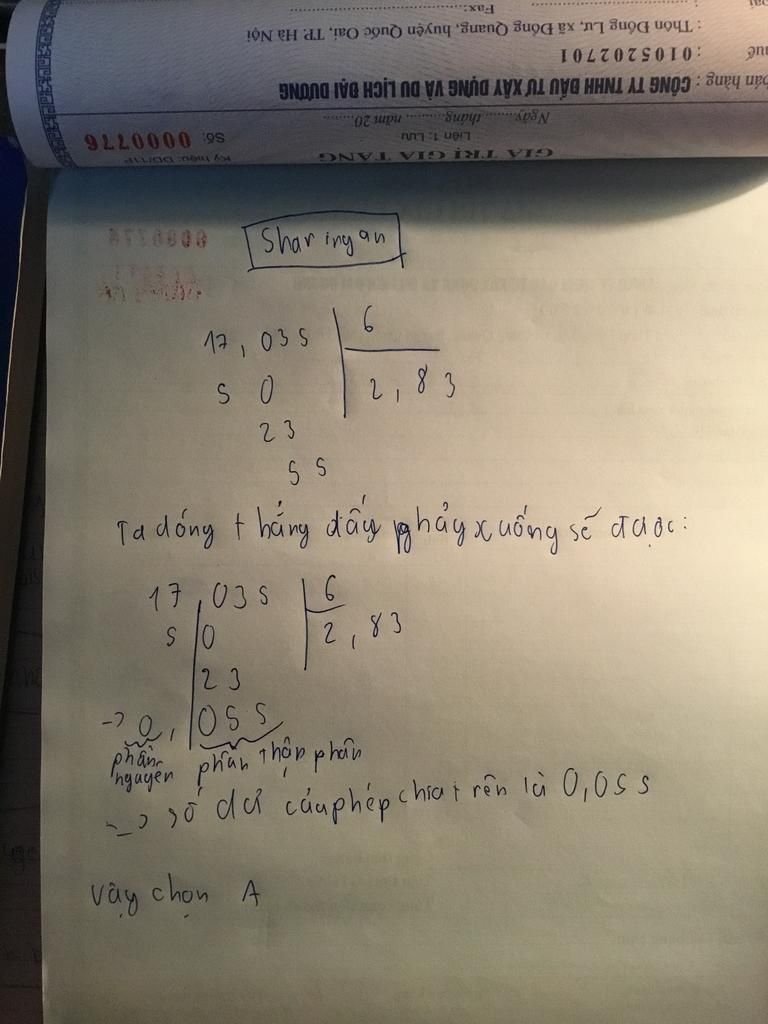 Thôn Đồng Lư, xã Đồng Quang, huyện Quốc Oai, TP. Hà Nội
Fax:
: 0105202701
bán hàng : CÔNG TY TNHH ĐẦU TƯ XÂY DỰNG VÀ DU LỊCH ĐẠI DƯƠNG
Ngày......... tháng......... năm 20.........
Liên 1: Lưu
Số: 0000776
GIÁ TRỊ GIA TĂNG
Sharingan
17,035 6
5 0 2,83
23
55
Ta dóng thẳng dấy phảy xuống sẽ được:
17,035 6
5 0 2,83
23
-> 0,055
phần nguyên phần thập phân
=> số dư của phép chia trên là 0,055
Vậy chọn A